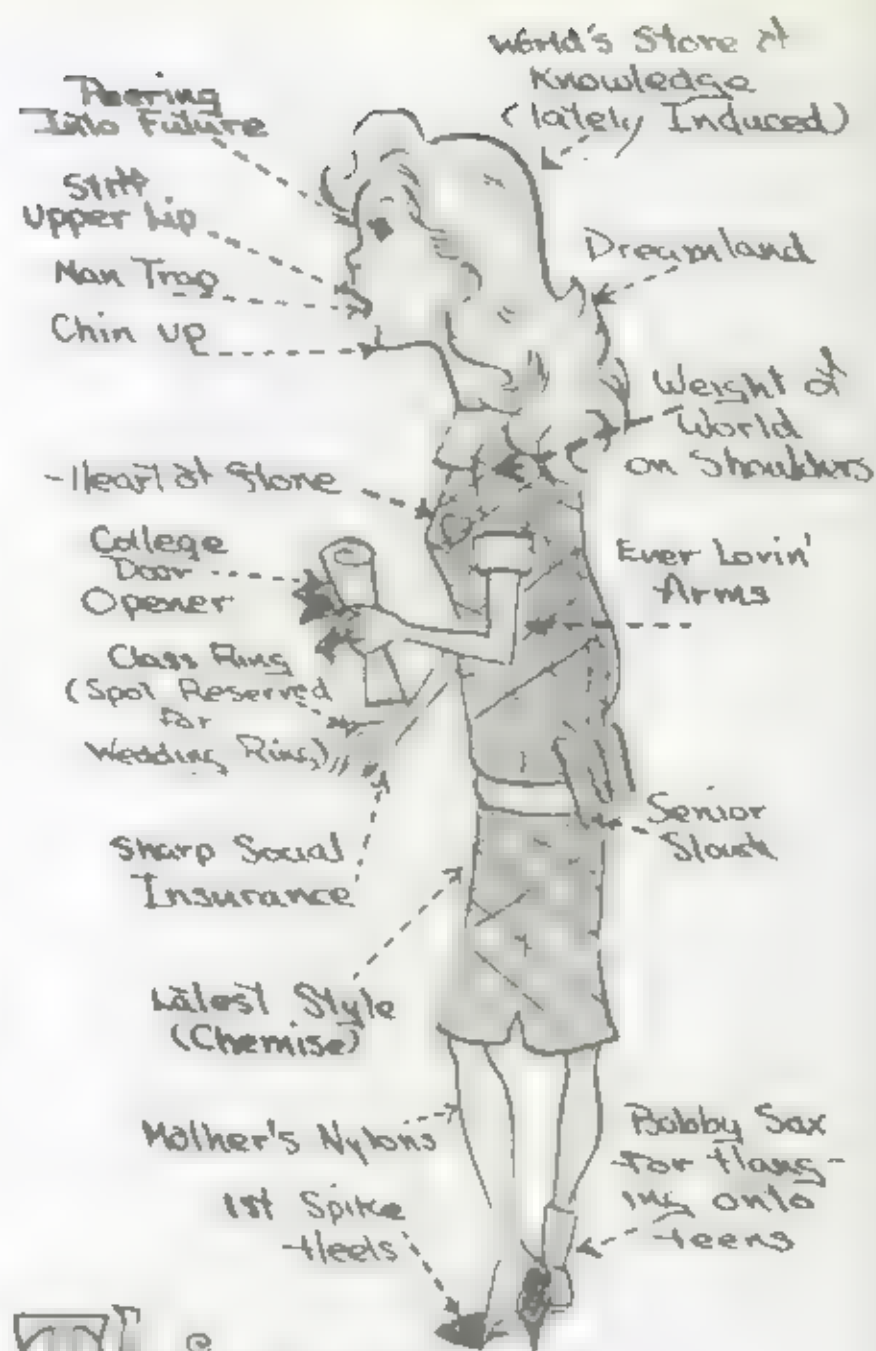 World's Store of
Knowledge
(lately Induced)
Peering
Into Future
Stiff
Upper Lip
Man Trap
Chin up
Dreamland
Weight of
World
on Shoulders
Heart of Stone
College
Door
Opener
Ever Lovin'
Arms
Class Ring
(Spot Reserved
for
Wedding Ring)
Senior
Slouch
Sharp Social
Insurance
Latest Style
(Chemise)
Mother's Nylons
Bobby Sox
for Hang-
ing onto
teens
1st Spike
Heels